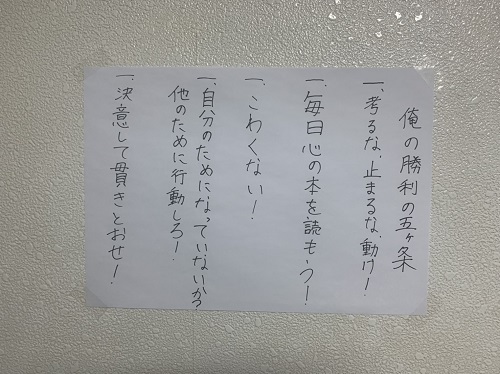 俺の勝利の五ヶ条
一、考るな、止まるな、動け!
一、毎日心の本を読もう!
一、こわくない!
一、自分のためになっていないか?
他のために行動しろ!
一、決意して貫きとおせ!